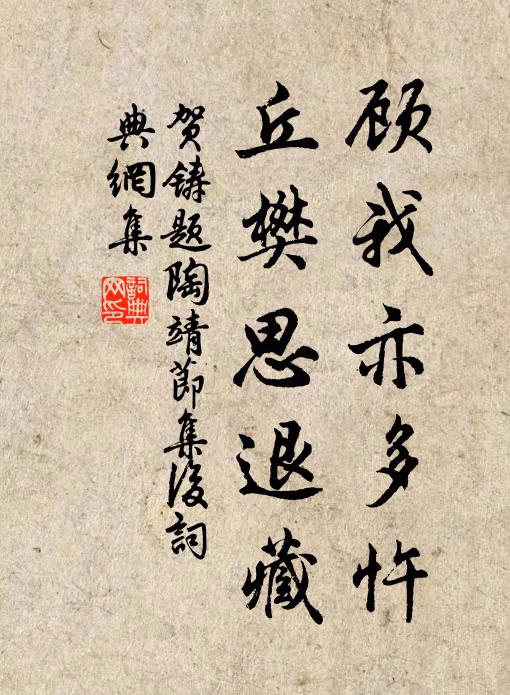 顾我亦多忤
丘樊思退藏
贺铸题陶靖节集后词
典網集
詞典網印